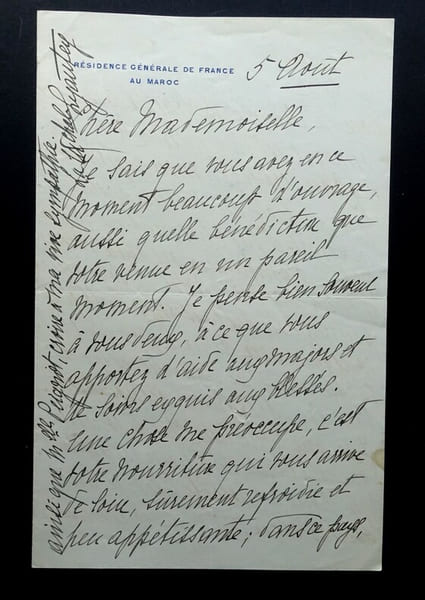 RÉSIDENCE GÉNÉRALE DE FRANCE
AU MAROC
5 Août
Chère Mademoiselle,
Je sais que vous avez en ce
moment beaucoup d'ouvrage,
aussi quelle bénédiction que
votre venue en un pareil
moment. Je pense bien souvent
à vous deux, à ce que vous
apportez d'aide aux majors et
de soins exquis aux blessés.
Une chose me préoccupe, c'est
votre nourriture qui vous arrive
de loin, sûrement refroidie et
peu appétissante; dans ce pays,
ainsi que Mlle, croire à ma vive sympathie
Lyautey